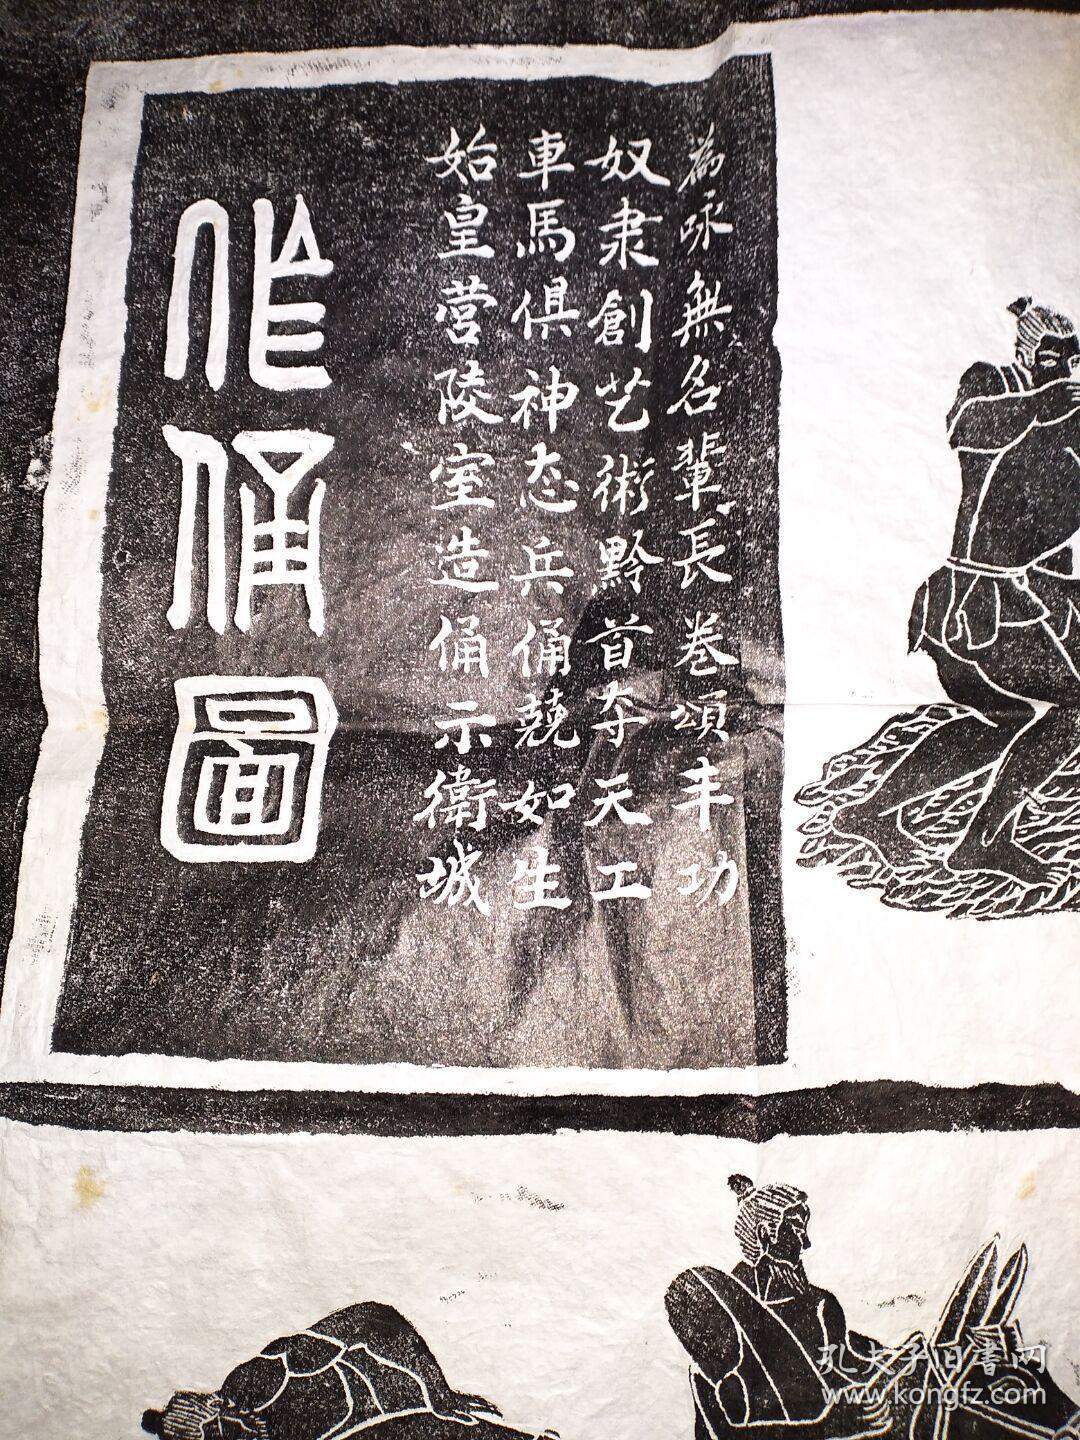 作俑圖
始皇营陵室造俑示衛城
車馬俱神态兵俑兢如生
奴隶創艺術黔首夺天工
為咏無名輩長卷頌丰功
孔夫子旧書网
www.kongfz.com